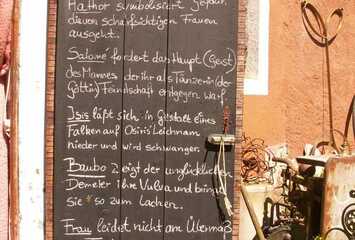 Hathor symbolisiert
diesen scharfsichtigen Frauen
ausgeht.
Salomé fordert das Haupt (Geist)
des Mannes der ihr als Tänzerin (der
Göttin) Feindschaft entgegen warf
Isis läßt sich in Gestalt eines
Falken auf Osiris' Leichnam
nieder und wird schwanger.
Baubo zeigt der unglücklichen
Demeter ihre Vulva und bringt
sie so zum Lachen.
Frau leidet nicht am Übermaß